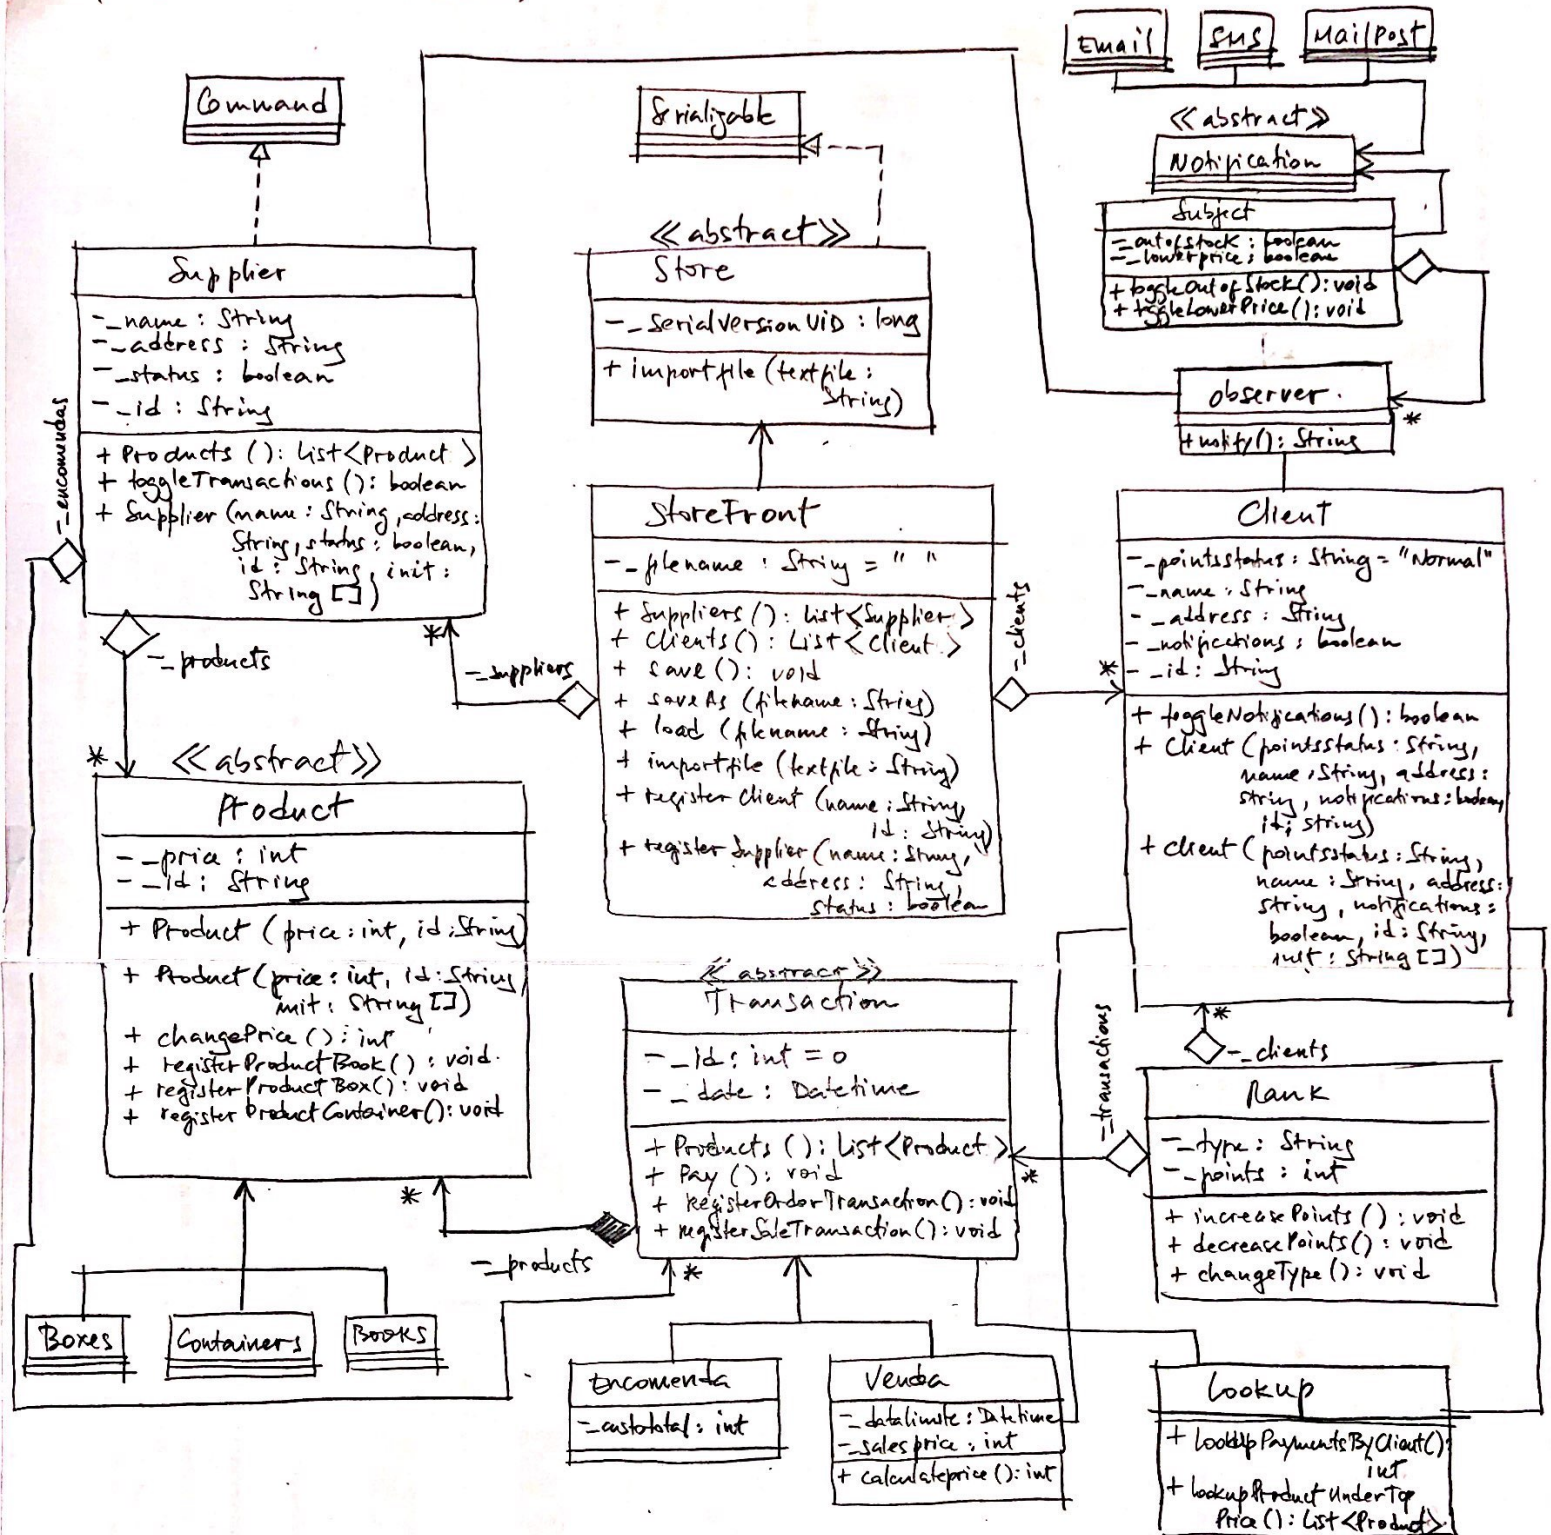 Email
SMS
MailPost
<<abstract>>
Notification
Command
Serializable
Subject
-_outofstock : boolean
-_lowerprice : boolean
+ toggleOutofStock() : void
+ toggleLowerPrice() : void
observer.
*
+notify() : String
Supplier
-_name : String
-_address : String
-_status : boolean
-_id : String
+ Products () : List<Product>
+ toggleTransactions () : boolean
+ Supplier (name : String, address :
String, status : boolean,
id : String, init :
String [])
-_encomendas
-_products
*
<<abstract>>
Store
-_serialVersionUID : long
+ importfile (textfile :
String)
StoreFront
-_filename : String = " "
+ Suppliers () : List<Supplier>
+ Clients () : List<Client>
+ save () : void
+ saveAs (filename : String)
+ load (filename : String)
+ importfile (textfile : String)
+ registerClient (name : String,
id : String)
+ registerSupplier (name : String,
address : String,
status : boolean
*
-_suppliers
-_clients
*
Client
-_pointsstatus : String = "Normal"
-_name : String
-_address : String
-_notifications : boolean
-_id : String
+ toggleNotifications() : boolean
+ Client (pointsstatus : String,
name : String, address :
string, notifications : boolean,
id : string)
+ client (pointsstatus : String,
name : String, address :
string, notifications :
boolean, id : String,
init : string [])
<<abstract>>
Product
-_price : int
-_id : String
+ Product (price : int, id : String)
+ Product (price : int, id : String
init : String [])
+ changePrice () : int
+ registerProductBook () : void.
+ registerProductBox() : void
+ registerProductContainer() : void
*
-_products
Boxes
Containers
Books
<<abstract>>
Transaction
-_id : int = 0
-_date : Datetime
+ Products () : List<Product>
+ Pay () : void
+ RegisterOrderTransaction() : void
+ registerSaleTransaction() : void
*
*
-_transactions
*
-_clients
Rank
-_type : String
-_points : int
+ increasePoints () : void
+ decreasePoints() : void
+ changeType () : void
Encomenda
-_custototal : int
Venda
-_datalimite : Datetime
-_salesprice : int
+ calculateprice () : int
Lookup
+ LookUpPaymentsByClient() :
int
+ lookupProductUnderTop
Price () : List<Product>